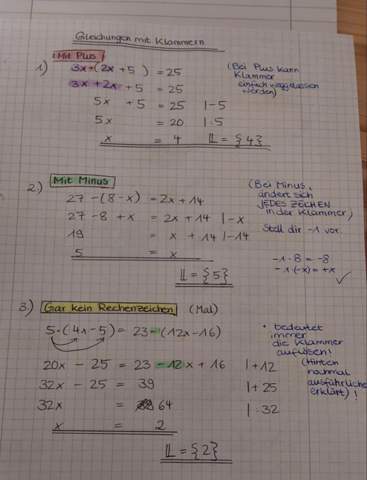 Gleichungen mit Klammern
1) Mit Plus
3x+(2x+5) = 25
3x+2x+5 = 25
5x +5 = 25 |-5
5x = 20 |:5
x = 4 𝕃 = {4}
(Bei Plus kann
Klammer
einfach weggelassen
werden)
2) Mit Minus
27-(8-x) = 2x+14
27-8+x = 2x+14 |-x
19 = x+14 |-14
5 = x
𝕃 = {5}
(Bei Minus,
ändert sich
JEDES ZEICHEN
in der Klammer)
Stell dir -1 vor.
-1·8 = -8
-1·(-x) = +x
3) Gar kein Rechenzeichen (Mal)
5·(4x-5) = 23-(12x-16)
20x - 25 = 23-12x+16 |+12
32x - 25 = 39 |+25
32x = 64 |:32
x = 2
𝕃 = {2}
· bedeutet
immer
die Klammer
auflösen!
(Hinten
nochmal
erklärt)!